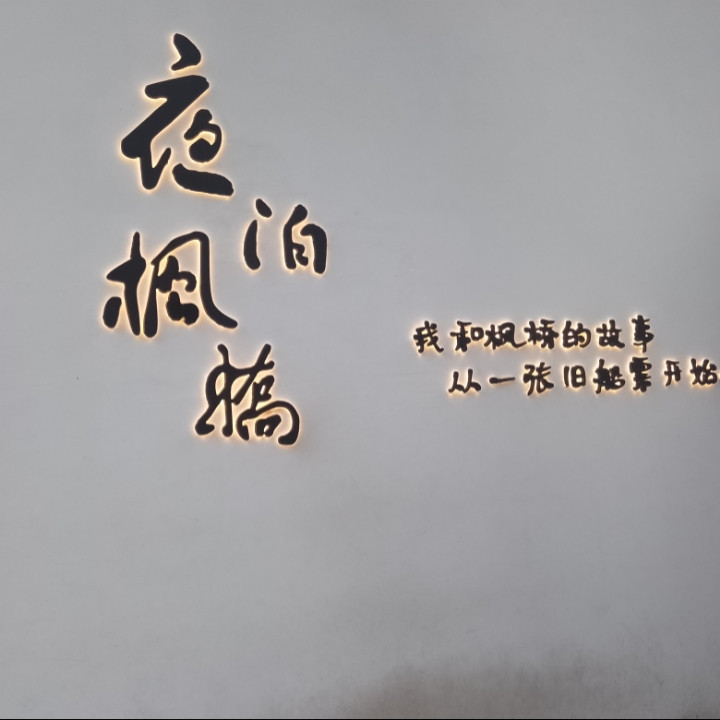 夜泊
楓橋
我和枫桥的故事
从一张旧船票开始